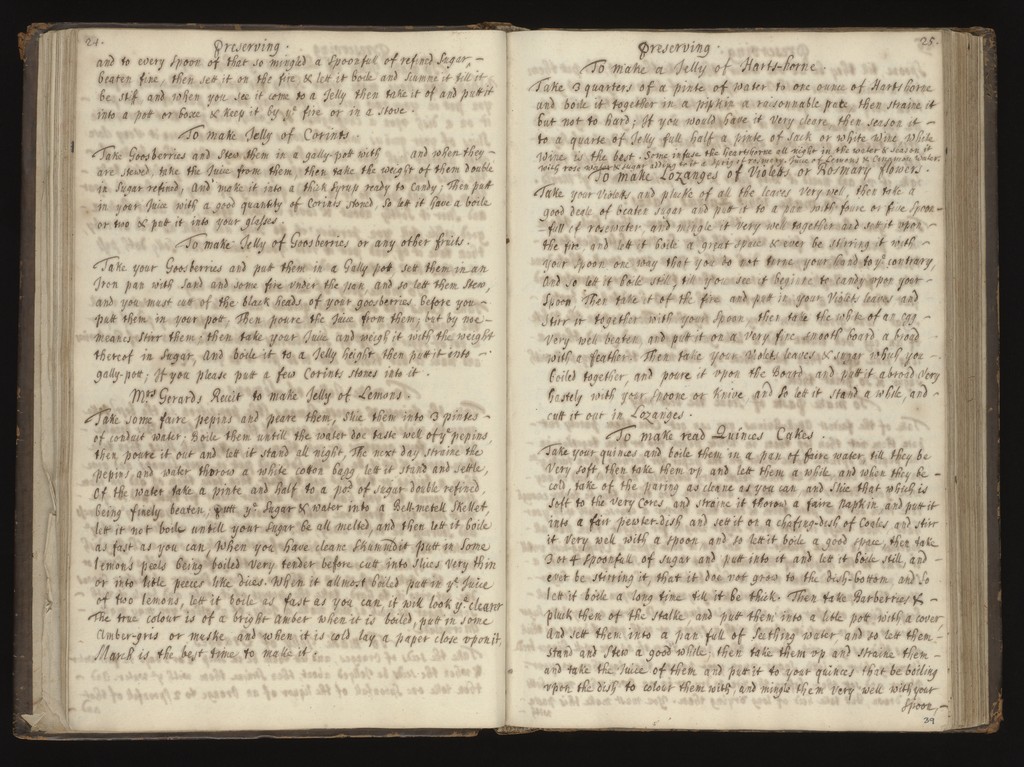 24.
Preserving.
and to every Spoon of that so mingled a Spoonful of refined Sugar,
beaten fine, then sett it on the fire & lett it boile and Scumme it till it
be stif and when you see it come to a Jelly then take it of and putt it
into a pott or boxe & keep it by yͤ fire or in a Stove.
To make Jelly of Corints.
Take Goosberries and Stew them in a gally-pott with and when they
are stewed, take the Juice from them, then take the weight of them double
in Sugar refined, And make it into a thick Syrup ready to Candy; Then putt
in your Juice with a good quantity of Corints stoned, So lett it have a boile
or two & putt it into your glasses.
To make Jelly of Goosberries or any other fruits.
Take your Goosberries and putt them in a Gally pott, sett them in an
Iron pan with Sand and some fire vnder the pan, and so lett them Stew,
and you must cutt of the black heads of your goosberries, before you
putt them in your pott, Then poure the Juice from them, but by noe
meanes Stirr them; then take your Juice and weigh it with the weight
thereof in Sugar, And boile it to a Jelly height then putt it into
gally-pott; If you please putt a few Corints stones into it.
Mʳˢ Gerards Receit to make Jelly of Lemons.
Take some faire pepins and peare them, Slice them into 3 pintes
of conduit water. Boile them untill the water doe taste well of yͤ pepins,
then poure it out and lett it stand all night, The next day straine the
pepins and water thorow a white cotton bagg lett it stand and settle,
Of the water take a pinte and half to a poᵈ of sugar double refined,
being finely beaten, putt yͤ Sugar & water into a Bell-metell Skellet,
lett it not boile untill your Sugar be all melted, and then lett it boile
as fast as you can, When you have cleane Skummdit putt in some
lemons peels being boiled very tender before cutt into Slices very thin
or into little peeces like dices. When it allmost boiled putt in yͤ Juice
of two lemons, lett it boile as fast as you can, it will look yͤ clearer
The true colour is of a bright Amber when it is boiled, putt in some
Amber-gris or muske, and when it is cold lay a paper close vpon it,
March is the best time to make it.
25.
Preserving.
To make a Jelly of Harts-horne.
Take 3 quarters of a pinte of water to one ounce of Hartshorne
and boile it together in a pipkin a raisonnable pace then straine it
but not to hard; If you would have it very cleare, then season it
to a quarte of Jelly full half a pinte of sack or white wine while
wine is the best. Some infuse the heartshorne all night in the water & season it
with rose water & sugar adding to it a sprig of rosemary Juice of Lemons & Cinnamon water.
To make Lozanges of Violets or Rosmary flowers.
Take your Violets, and plucke of all the leaves very well, then take a
good deale of beaten sugar and putt it to a pan with foure or five Spoon
full of rosewater, and mingle it very well together and sett it vpon
the fire, and lett it boile a great space & ever be stirring it with
your spoon one way that you do not turne your hand to yͤ contrary,
And so lett it boile still till you see it beginne to candy vpon your
Spoon, Then take it of the fire and put in your Violets leaves and
Stirr it together with your Spoon, then take the white of an egg
very well beaten, and putt it on a very fine smooth board a broad
with a feather: Then take your Violets leaves & sugar which you
boiled together, and poure it vpon the Board, and putt it abroad very
hastely with your Spoone or knive, and So lett it stand a while, and
cutt it out in Lozanges.
To make read Quinces Cakes.
Take your quinces and boile them in a pan of faire water, till they be
very Soft, then take them vp and lett them a while, and when they be
cold, take of the paring as cleane as you can and Slice that which is
Soft to the very Cores, and straine it thorow a faire Napkin, and put it
into a fair pewter-dish and sett it or a chafing-dish of Coales and stirr
it very well with a spoon, and so lett it boile a good space, then take
3 or 4 Spoonfull of sugar and putt into it and lett it boile still, and
ever be stirring it, that it doe not grow to the dish-bottom and So
lett it boile a long time till it be thick. Then take Barberries &
pluck them of the stalke and putt them into a little pott with a cover
and sett them into a pan full of Seething water, and so lett them
stand and Stew a good while, then take them vp and Straine them
and take the Juice of them and putt it to your quinces that be boiling
vpon the dish to colour them with, and mingle them very well with your
Spoon,
39